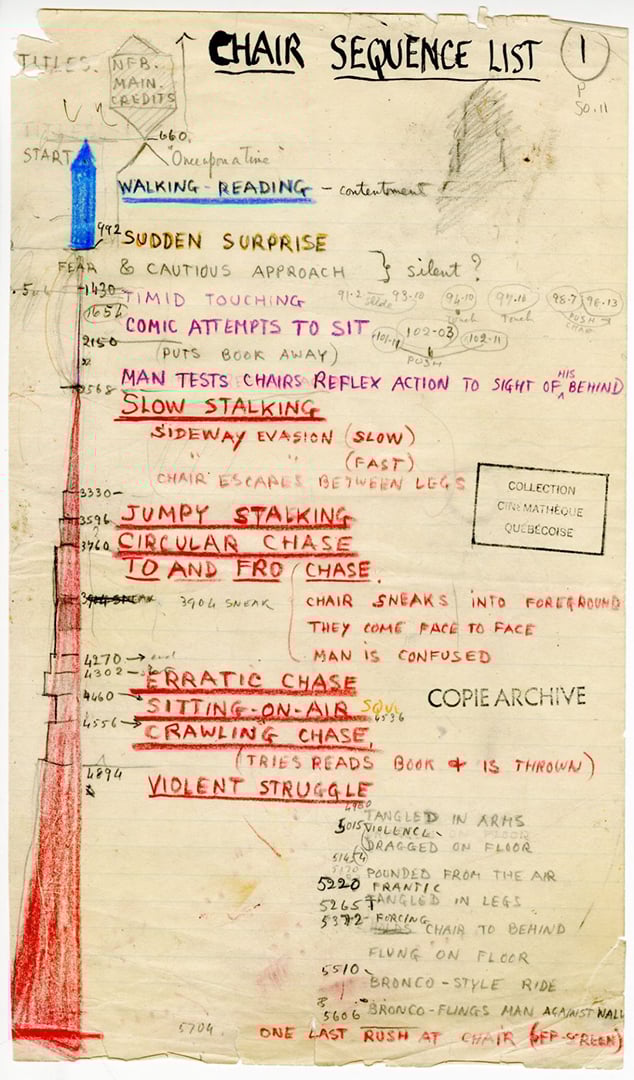 CHAIR SEQUENCE LIST
1
P
50.11
TITLES.
NFB.
MAIN.
CREDITS
660.
START
"Once upon a time"
WALKING-READING - contentment
992
SUDDEN SURPRISE
FEAR & CAUTIOUS APPROACH } silent?
1430
TIMID TOUCHING
91-2 93-10 94-10 Touch 98-7 98-13
PUSH
1654
COMIC ATTEMPTS TO SIT
101-11 102-03 102-11
PUSH
2150
(PUTS BOOK AWAY)
2568
MAN TESTS CHAIRS REFLEX ACTION TO SIGHT OF HIS BEHIND
SLOW STALKING
SIDEWAY EVASION (SLOW)
" " (FAST)
CHAIR ESCAPES BETWEEN LEGS
3330-
COLLECTION
CINÉMATHÈQUE
QUÉBÉCOISE
3596
JUMPY STALKING
3760
CIRCULAR CHASE
TO AND FRO (CHASE.
3904 SNEAK 3904 SNEAK
CHAIR SNEAKS INTO FOREGROUND
THEY COME FACE TO FACE
MAN IS CONFUSED
4270 → end
4302
ERRATIC CHASE
4460
SITTING-ON-AIR
4536
COPIE ARCHIVE
4556
CRAWLING CHASE,
(TRIES READS BOOK & IS THROWN)
4894
VIOLENT STRUGGLE
4980
TANGLED IN ARMS
5015 VIOLENCE
DRAGGED ON FLOOR
POUNDED FROM THE AIR
5220 FRANTIC
5265 TANGLED IN LEGS
5372 FORCING
CHAIR TO BEHIND
FLUNG ON FLOOR
5510
BRONCO-STYLE RIDE
5606
BRONCO-FLINGS MAN AGAINST WALL
5704.
ONE LAST RUSH AT CHAIR (OFF-SCREEN)